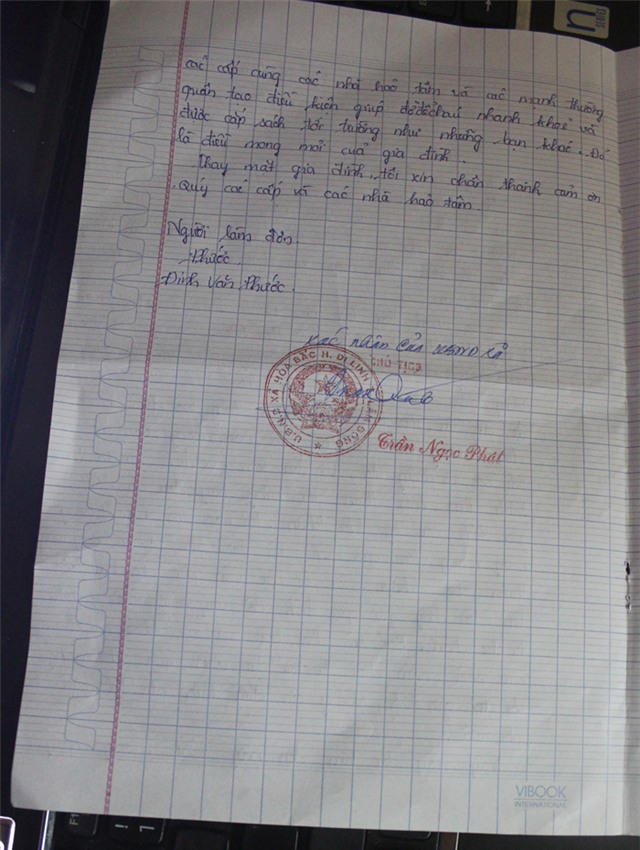 các cấp cùng các nhà hảo tâm và các mạnh thường
quân tạo điều kiện giúp đỡ để cháu nhanh khoẻ và
được cắp sách tới trường như những bạn khác. Đó
là điều mong mỏi của gia đình.
Thay mặt gia đình, tôi xin chân thành cảm ơn
Quý các cấp và các nhà hảo tâm.
Người làm đơn.
Phước.
Đinh Văn Phước.
Xác nhận của UBND xã
CHỦ TỊCH
U.B.N.D XÃ HÒA BẮC H. DI LINH T. LÂM ĐỒNG
Trần Ngọc Phát
VIBOOK
INTERNATIONAL
F1